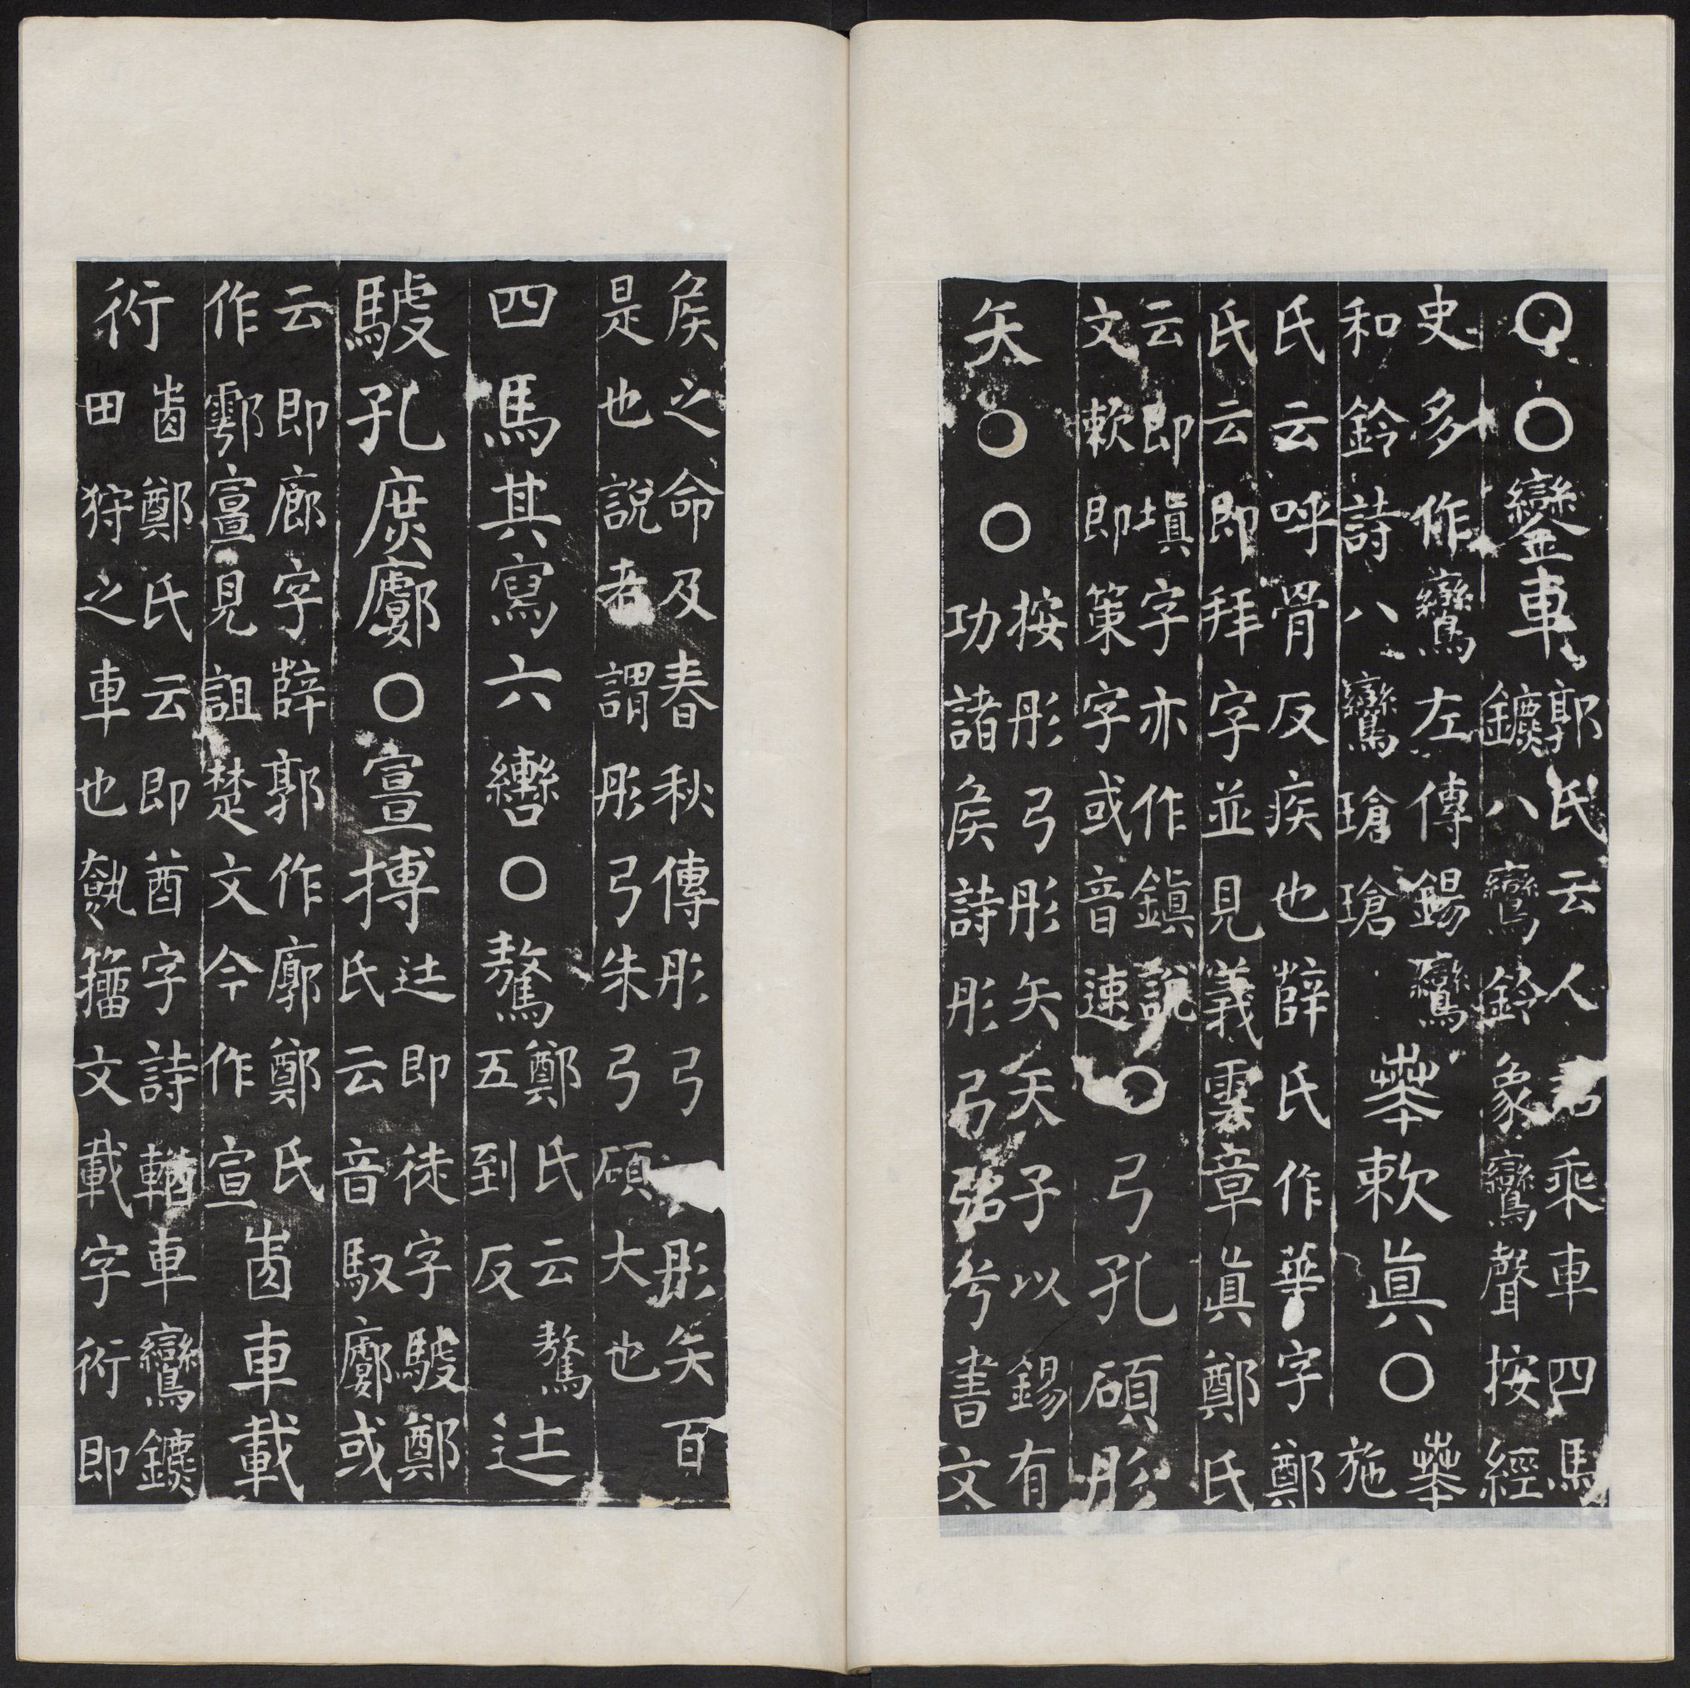 ○○鑾車
郭氏云人君乘車四馬
鑣八鸞鈴象鸞聲按經
史多作鸞左傳鍚鸞
和鈴詩八鸞瑲瑲
𠦪敕眞○
𠦪
施
氏云呼骨反疾也薛氏作華字鄭
氏云即拜字並見義雲章眞鄭氏
云即塡字亦作鎭說
文敕即策字或音速
○弓孔碩彤
矢○○
按彤弓彤矢矢子以錫有
功諸侯詩彤弓弨兮書文
侯之命及春秋傳彤弓彤矢百
是也說者謂彤弓朱弓碩大也
四馬其寫六轡○驁
鄭氏云驁
五到反
𨑒
孔庶○宣搏
𨑒即徒字鄭
氏云音馭或
云即廊字薛郭作廓鄭氏
作宣見詛楚文今作宣
車載
衍
鄭氏云即酋字詩輶車鸞鑣
田狩之車也籀文載字衍即